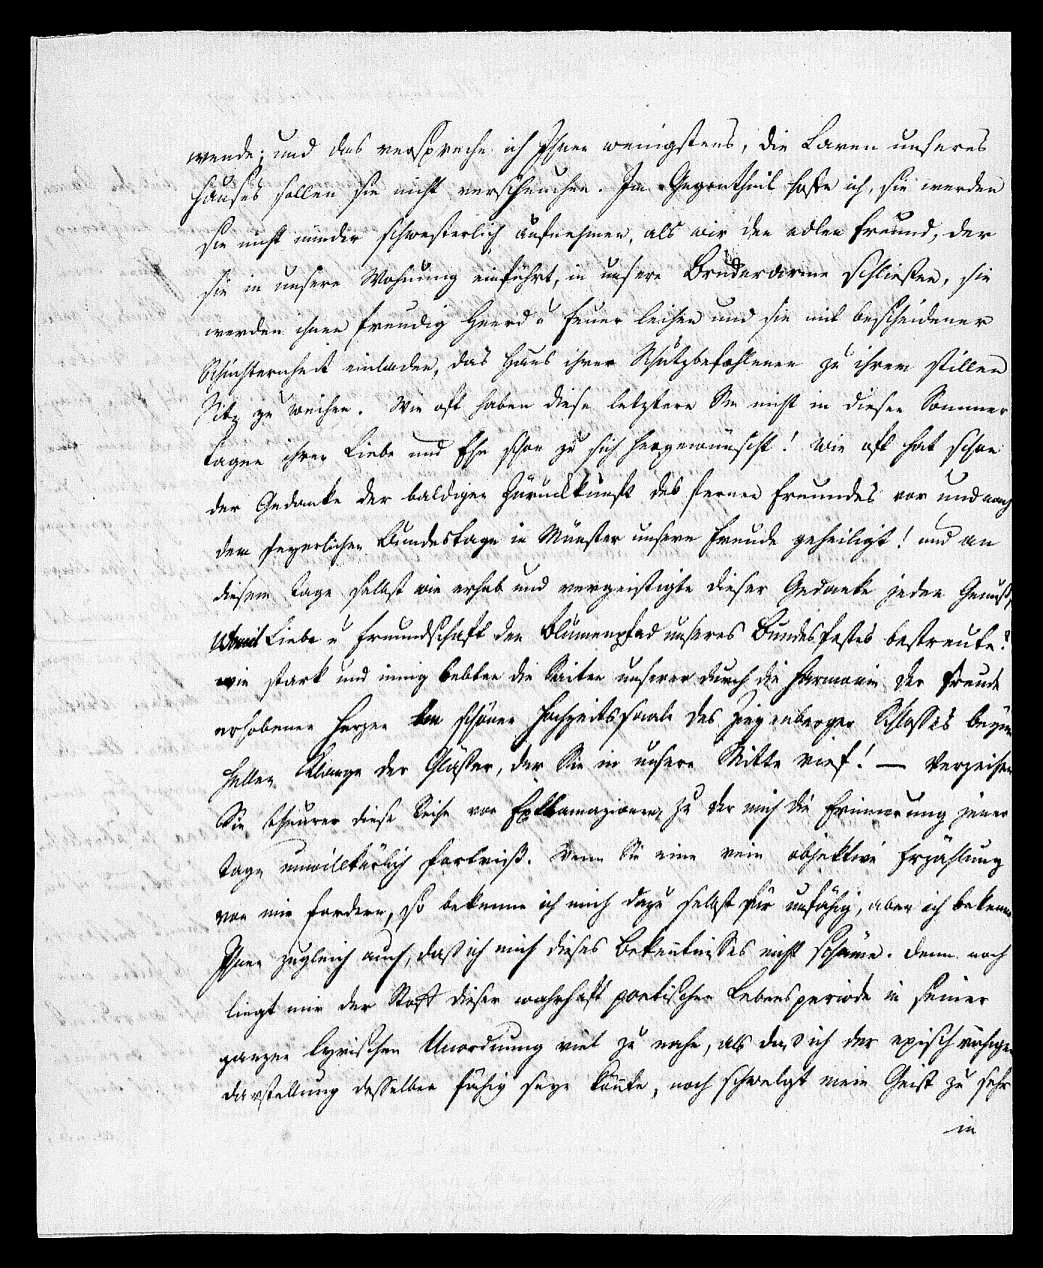 wende; und das verspreche ich Ihnen wenigstens, die Laren unseres
Hauses sollen sie nicht verscheuchen. Im Gegentheil hoffe ich, sie werden
sie nicht minder schwesterlich aufnehmen, als wir den edlen Freund, der
sie in unsere Wohnung einführt, in unsere Bruderarme schließen, sie
werden ihnen freudig Heerd u Feuer leihen und sie mit bescheidener
Schüchternheit einladen, das Haus ihrer Schutzbefohlenen zu ihrem stillen
Sitz zu weihen. Wie oft haben diese letztern Sie nicht in diesen Sommer
tagen ihrer Liebe und Ehe schon zu sich hergewünscht! Wie oft hat schon
der Gedanke der baldigen Zurückkunft des fernen Freundes vor und nach
dem feyerlichen Bundestage in Münster unsere Freude geheiligt! und an
diesem Tage selbst wie erhob und vergeistigte dieser Gedanke jeden Genuß,
womit Liebe u Freundschaft den Blumenpfad unseres Bundesfestes bestreute!
wie stark und innig bebten die Saiten unserer durch die Harmonie der Freude
erhobenen Herzen im schönen Hochzeitssaale des Ziegenberger Schlosses beym
hellen Klange der Gläser, der Sie in unsere Mitte rief! — Verzeihen
Sie theurer diese Reihe von Exklamazionen, zu der mich die Erinnerung jener
Tage unwillkürlich fortriß. Wenn Sie eine rein objektive Erzählung
von mir fordern, so bekenne ich mich dazu selbst für unfähig, aber ich bekenne
Ihnen zugleich auch, daß ich mich dieses Bekentnisses nicht schäme. Denn noch
liegt mir der Stoff dieser wahrhaft poetischen Lebensperiode in seiner
ganzen lyrischen Unordnung viel zu nahe, als daß ich der episch ruhigen
Darstellung desselben fähig seyn könte, noch schwelgt mein Geist zu sehr
in